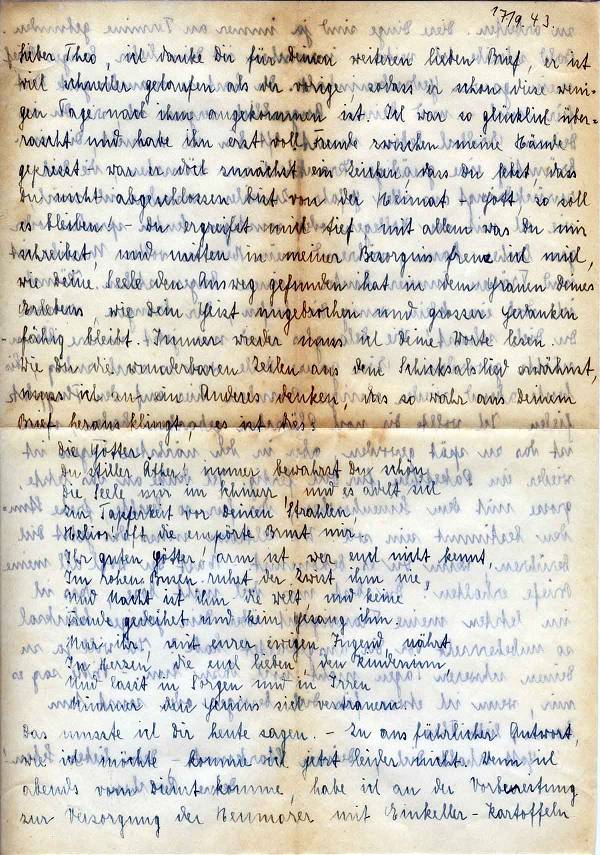 17/9.43.
Lieber Theo, ich danke Dir für Deinen weiteren lieben Brief, er ist
viel schneller gelaufen als der vorige, sodass er schon diese weni-
gen Tage nach ihm angekommen ist. Ich war so glücklich über-
rascht und habe ihn erst voll Freude zwischen meine Hände
gepresst – war er doch zunächst ein Zeichen, dass Du lebst, dass
Du nicht abgeschlossen bist von der Heimat – Gott so soll
es bleiben! – Du ergreifst mich tief mit allem was Du mir
schreibst, und mitten in meiner Besorgnis freue ich mich,
wie Deine Seele den Ausweg gefunden hat in dem Grauen Deines
Erlebens, wie Dein Geist ungebrochen und grosser Gedanken
fähig bleibt. Immer wieder muss ich Deine Worte lesen.
Wie Du die wunderbaren Zeilen aus dem Schicksalslied erwähnst,
muss ich an ein Anderes denken, das so wahr aus Deinem
Brief herausklingt, es ist dies:
Die Götter.
Du stiller Äther! immer bewahrst Du schön
Die Seele mir im Schmerz, und es adelt sich
Zur Tapferkeit vor Deinen Strahlen,
Helios! oft die empörte Brust mir.
Ihr guten Götter! arm ist, wer euch nicht kennt,
Im rohen Busen ruhet der Zwist ihm nie,
Und Nacht ist ihm die Welt, und keine
Freude gedeihet und kein Gesang ihm.
Nur ihr, mit eurer ewigen Jugend, nährt
In Herzen, die euch lieben, den Kindersinn,
Und lasst in Sorgen und in Irren
Nimmer den Genius sich vertrauern.
Das musste ich Dir heute sagen. – Zu ausführlicher Antwort,
wie ich möchte – komme ich jetzt leider nicht. Wenn ich
abends vom Dienst komme, habe ich an der Vorbereitung
zur Versorgung der mit Einkeller-Kartoffeln